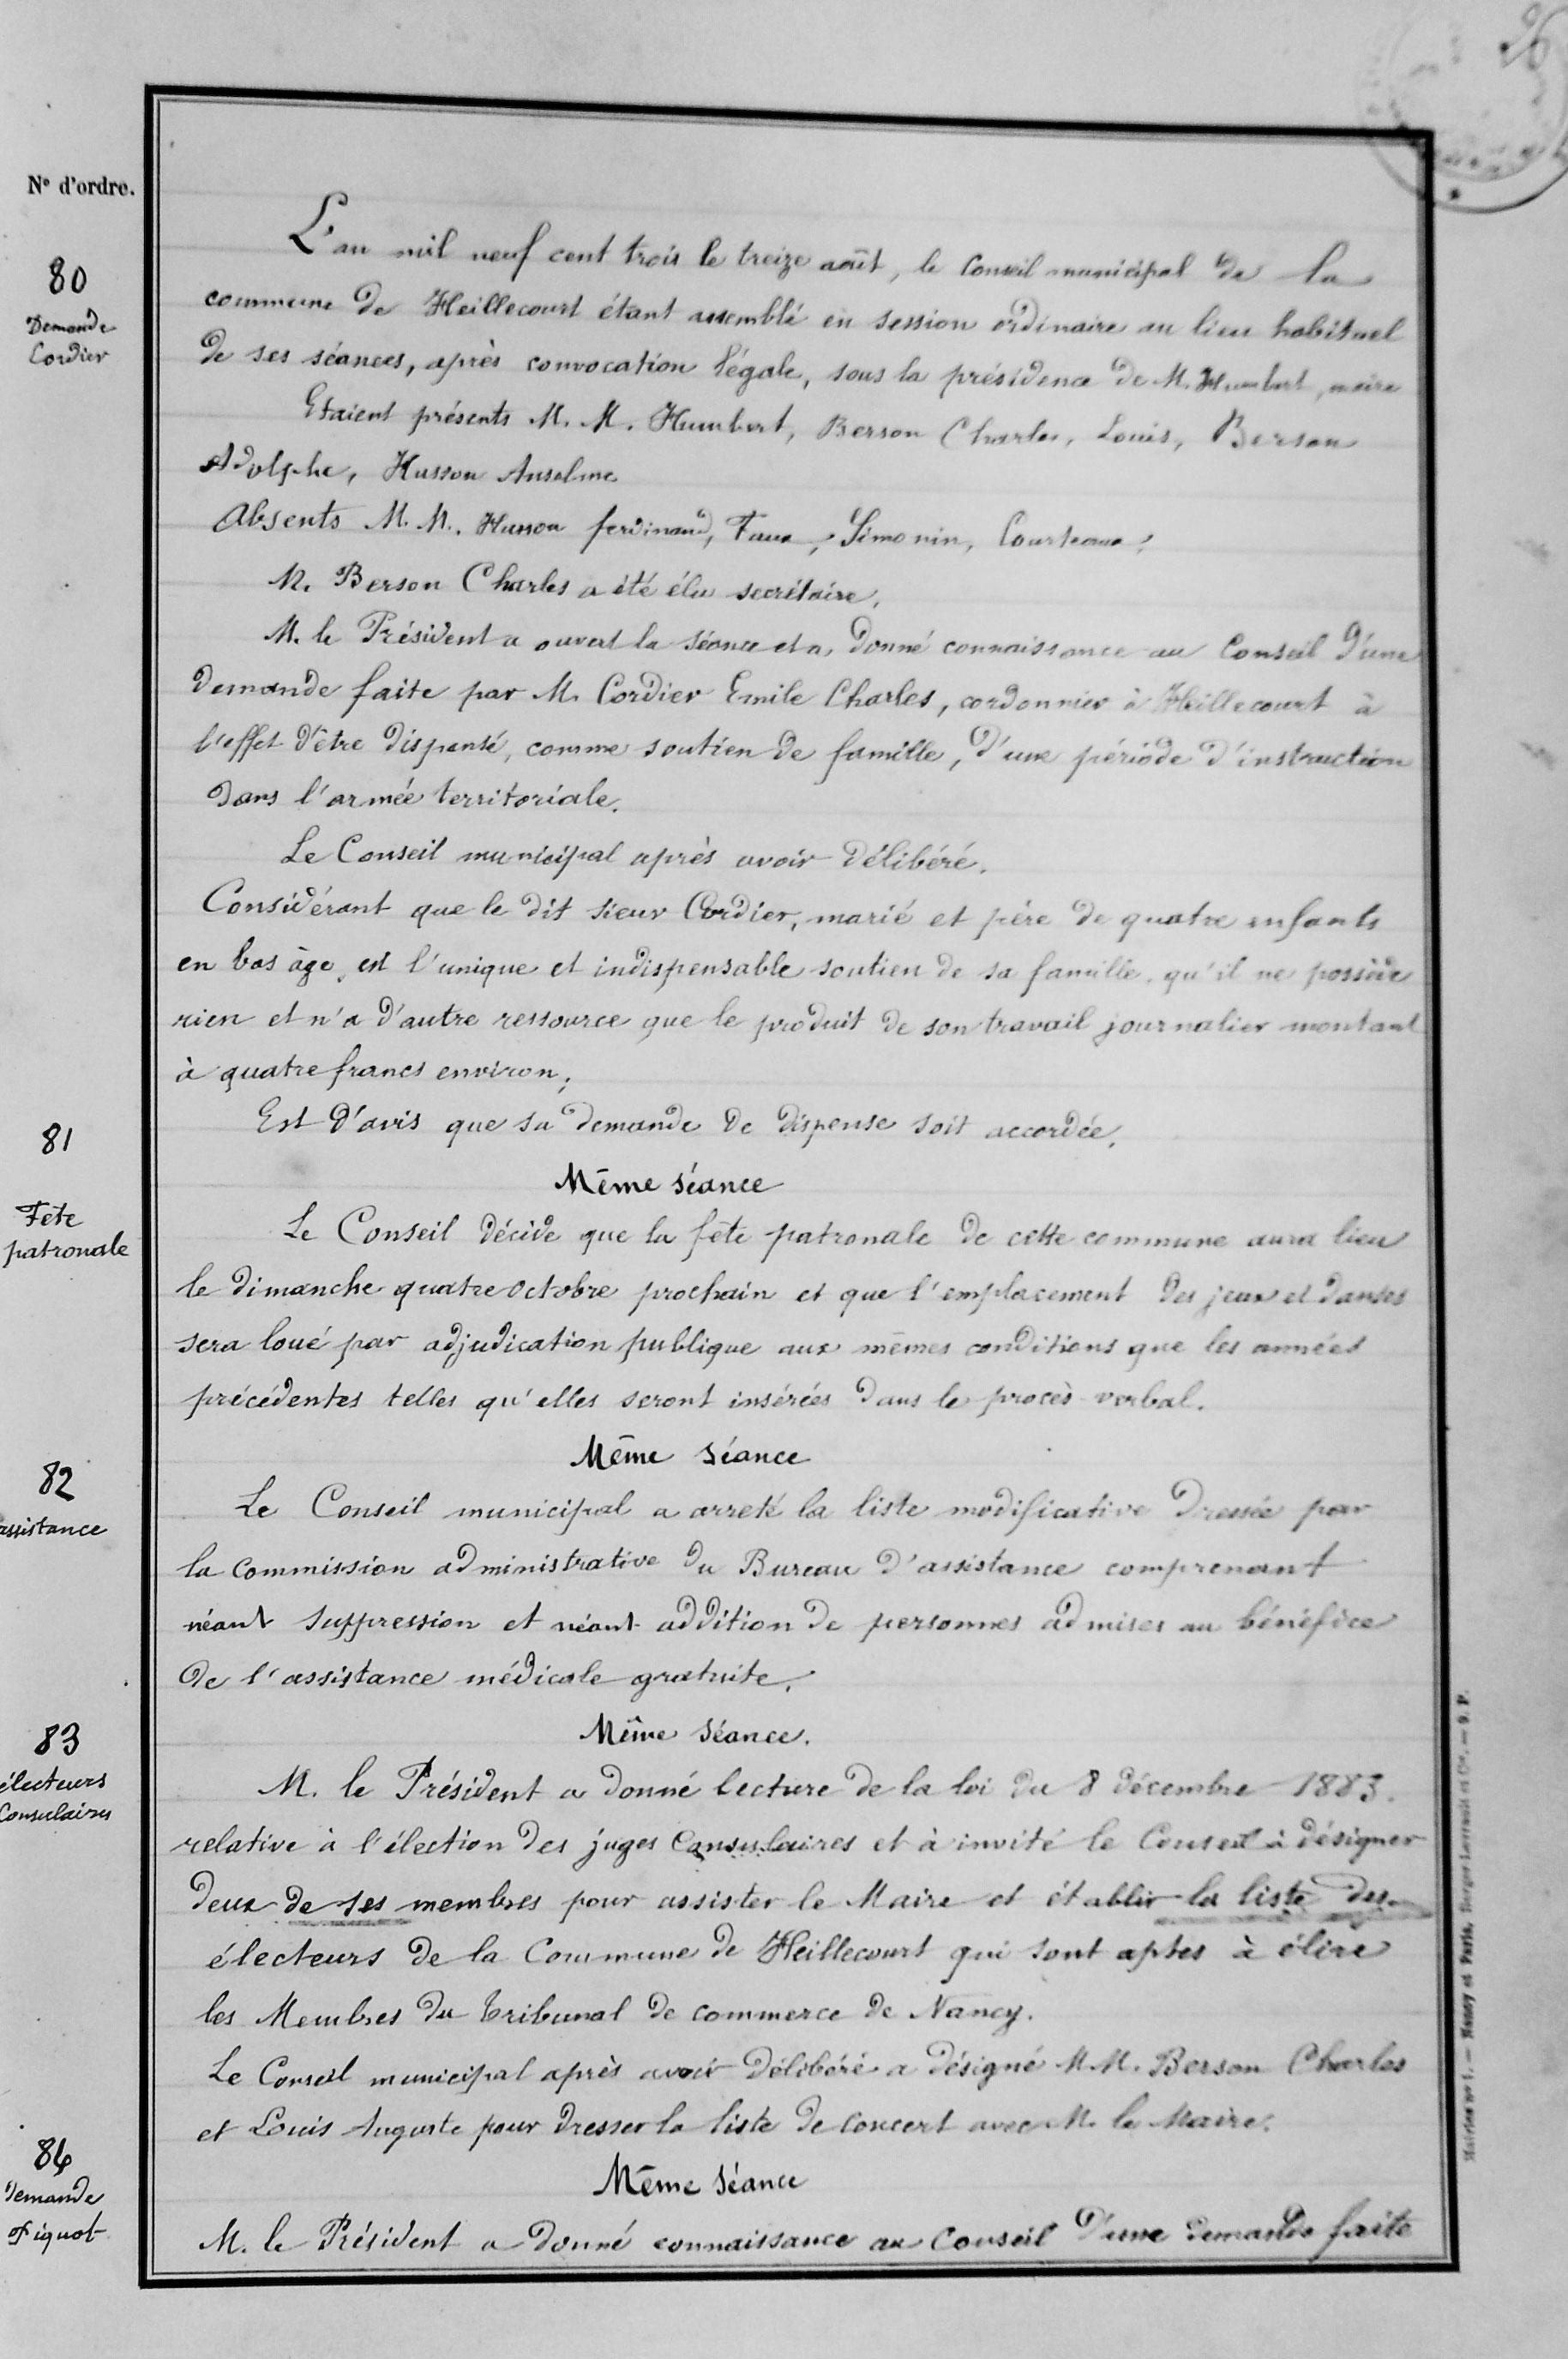 26
N° d'ordre.
80
Demande
Cordier
L'an mil neuf cent trois le treize août, le Conseil municipal de la
commune de Heillecourt étant assemblé en session ordinaire au lieu habituel
de ses séances, après convocation légale, sous la présidence de M. Humbert, maire
Etaient présents M. M. Humbert, Berson Charles, Louis, Berson
Adolphe, Husson Anselme
Absents M. M. Husson ferdinand, Faux, Simonin, Courteaux.
M. Berson Charles a été élu secrétaire.
M. le Président a ouvert la séance et a donné connaissance au Conseil d'une
demande faite par M. Cordier Emile Charles, cordonnier à Heillecourt à
l'effet d'être dispensé, comme soutien de famille, d'une période d'instruction
dans l'armée territoriale.
Le Conseil municipal après avoir délibéré.
Considérant que le dit sieur Cordier, marié et père de quatre enfants
en bas âge, est l'unique et indispensable soutien de sa famille, qu'il ne possède
rien et n'a d'autre ressource que le produit de son travail journalier montant
à quatre francs environ;
Est d'avis que sa demande de dispense soit accordée.
81
Fête
patronale
Même séance
Le Conseil décide que la fête patronale de cette commune aura lieu
le dimanche quatre octobre prochain et que l'emplacement des jeux et danses
sera loué par adjudication publique aux mêmes conditions que les années
précédentes telles qu'elles seront insérées dans le procès-verbal.
82
assistance
Même séance
Le Conseil municipal a arreté la liste modificative dressée par
la commission administrative du Bureau d'assistance comprenant
néant suppression et néant addition de personnes admises au bénéfice
de l'assistance médicale gratuite.
83
électeurs
Consulaires
Même séance.
M. le Président a donné lecture de la loi du 8 décembre 1883.
relative à l'élection des juges Consulaires et à invité le Conseil à désigner
deux de ses membres pour assister le Maire et établir la liste des
électeurs de la Commune de Heillecourt qui sont aptes à élire
les Membres du Tribunal de commerce de Nancy.
Le Conseil municipal après avoir délibéré a désigné M.M. Berson Charles
et Louis Auguste pour dresser la liste de concert avec M. le Maire.
84
Demande
Figuot
Même séance
M. le Président a donné connaissance au Conseil d'une demande faite
Nancy et Paris, Berger-Levrault et Cie.